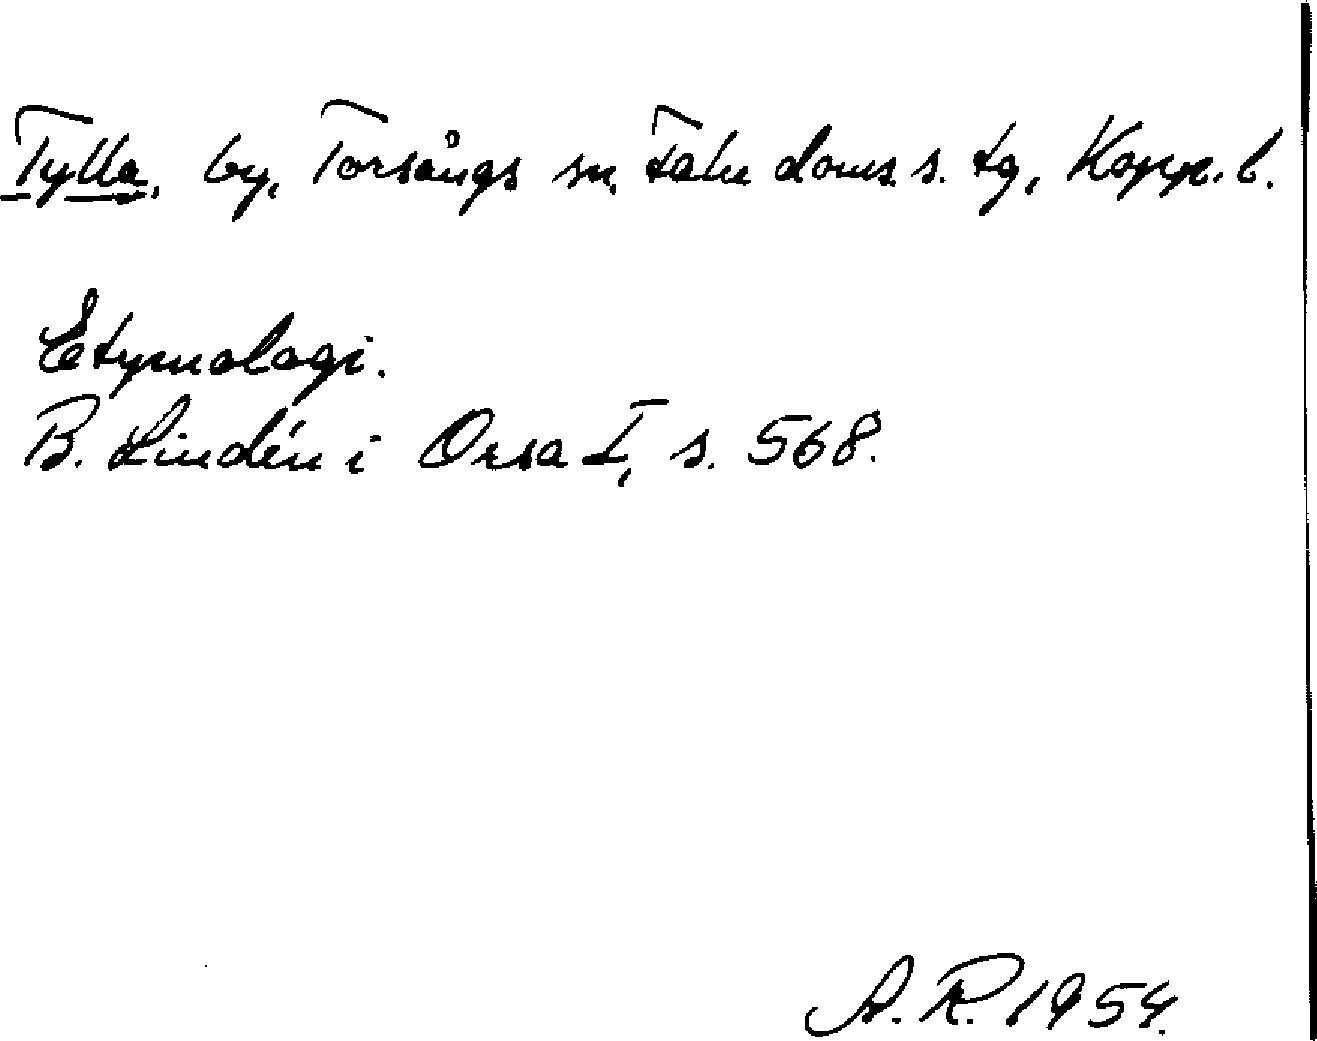 Tylla, by, Torsångs sn, Falu doms. s. tg, Kopp. l.
Etymologi.
B. Lindén i Orsa I, s. 568.
A. R. 1954.